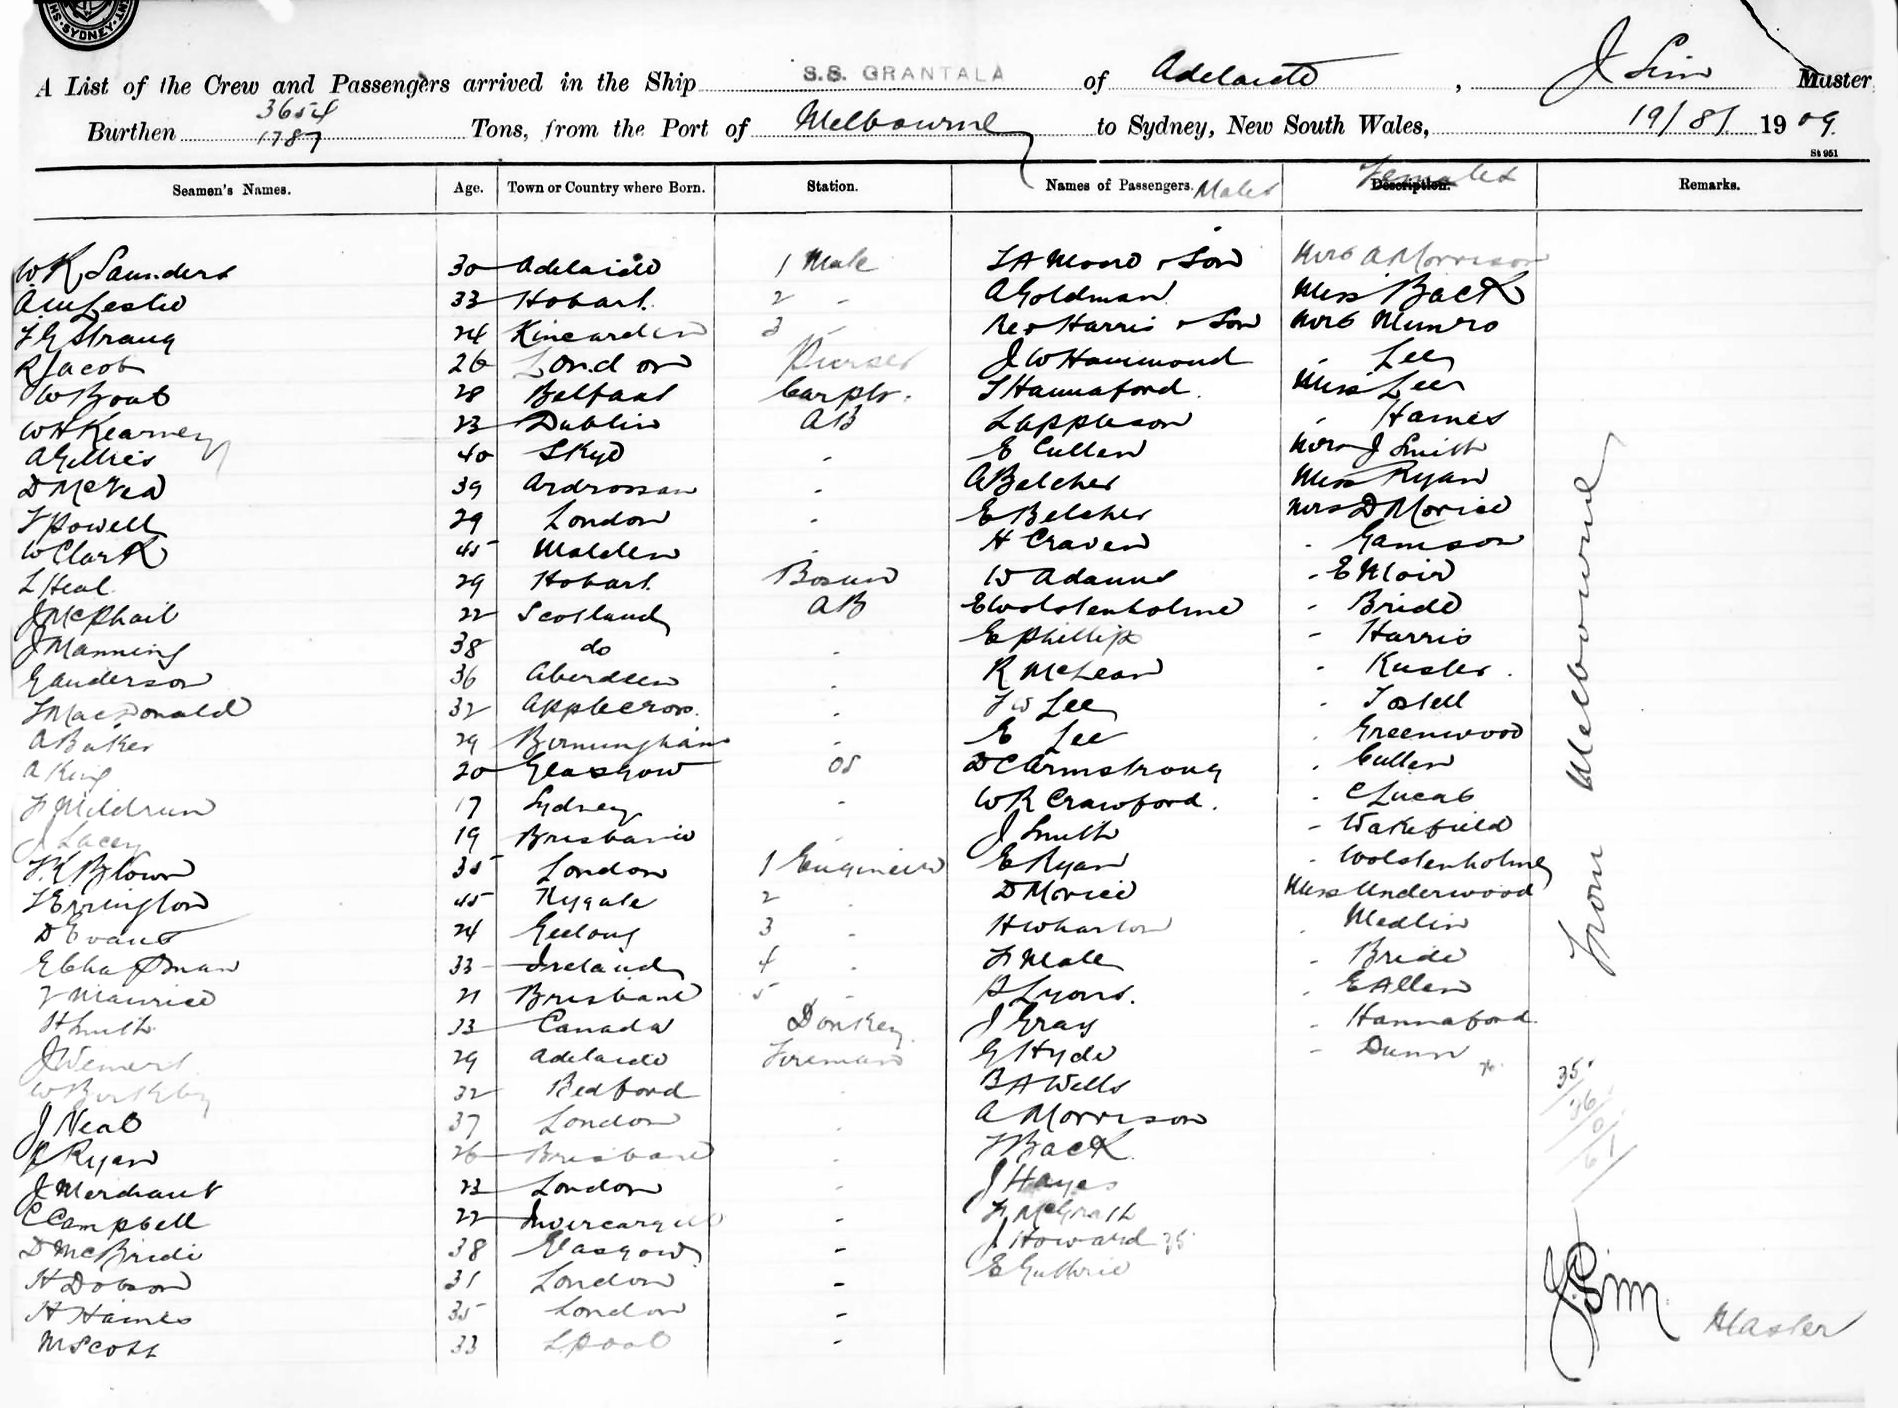 SYDNEY
A List of the Crew and Passengers arrived in the Ship S.S. GRANTALA of Adelaide, J Sim Master
Burthen 3654 1787 Tons, from the Port of Melbourne to Sydney, New South Wales, 19/8/ 1909
St 951
Seamen's Names. Age. Town or Country where Born. Station. Names of Passengers. Males Description. Females Remarks.
W K Saunders 30 Adelaide 1 Mate & Son Mrs A Morrison
A M Leslie 33 Hobart. 2 - A Goldman Miss Back
F G Strang 24 Kincardin 3 - Harris & Son Mrs Munro
R Jacob 26 London Purser J W Hammond - Lee
W Boab 28 Belfast Carptr. T Hannaford. Miss Lee
W H Kearney 23 Dublin AB L Appleson - Hames
A Gillies 40 Skye - E Cullen Mrs J Smith
D McVea 39 Ardrossan - A Belcher Miss Ryan
F Powell 29 London - E Belcher Mrs D Morice
W Clark 45 Malden - H Craven - Gamson
L Heal 29 Hobart. Bosun W Adams - E Moir
J McPhail 22 Scotland AB E Wolstenholme - Bride
J Manning 38 do - E Phillips - Harris
G Anderson 36 Aberdeen - R McLean - Kusler.
F MacDonald 32 Applecross. - F W Lee - Tostell
A Baker 29 Birmingham - E Lee - Greenwood
A King 20 Glasgow OS D C Armstrong - Cullen
F Mildrun 17 Sydney - W R Crawford. - C Lucas
J Lacey 19 Brisbane - J Smith - Wakefield
F. K Blown 35 London 1 Engineer E Ryan - Wolstenholme
T Errington 45 Rygate 2 - D Morice Miss Underwood
D Evans 24 Geelong 3 - H Wharton - Medlin
E Chapman 33 Ireland 4 - F Neale - Bride
F Maurice 21 Brisbane 5 - P Lyons. - E Allen
H Smith 33 Canada Donkey J Gray - Hannaford
J Wemert 29 Adelaide Fireman G Hyde - Dunn
W Birkby 32 Bedford - B A Wells
J Neal 37 London - A Morrison
P Ryan 26 Brisbane - F Back
J Merchant 23 London - J Hayes
C Campbell 22 Invercargill - F McGrath
D McBride 38 Glasgow - J Howard 35
H Dobson 31 London - E Guthrie
H Haines 35 London -
M Scott 33 Lpool -
From Melbourne
35
26
61
J. Sim Master